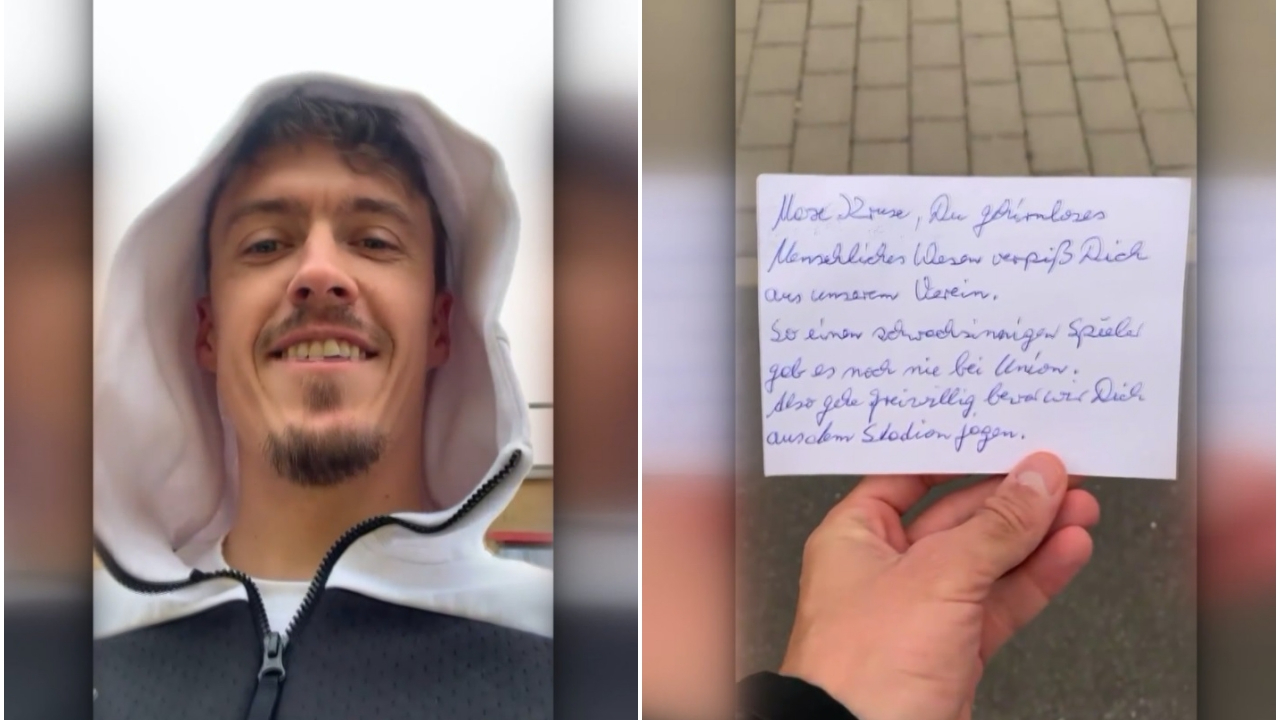 Maxe Kruse, Du gehirnloses
Menschliches Wesen verpiß Dich
aus unserem Verein.
So einen schwachsinnigen Spieler
gab es noch nie bei Union.
Also gehe freiwillig bevor wir Dich
aus dem Stadion jagen.